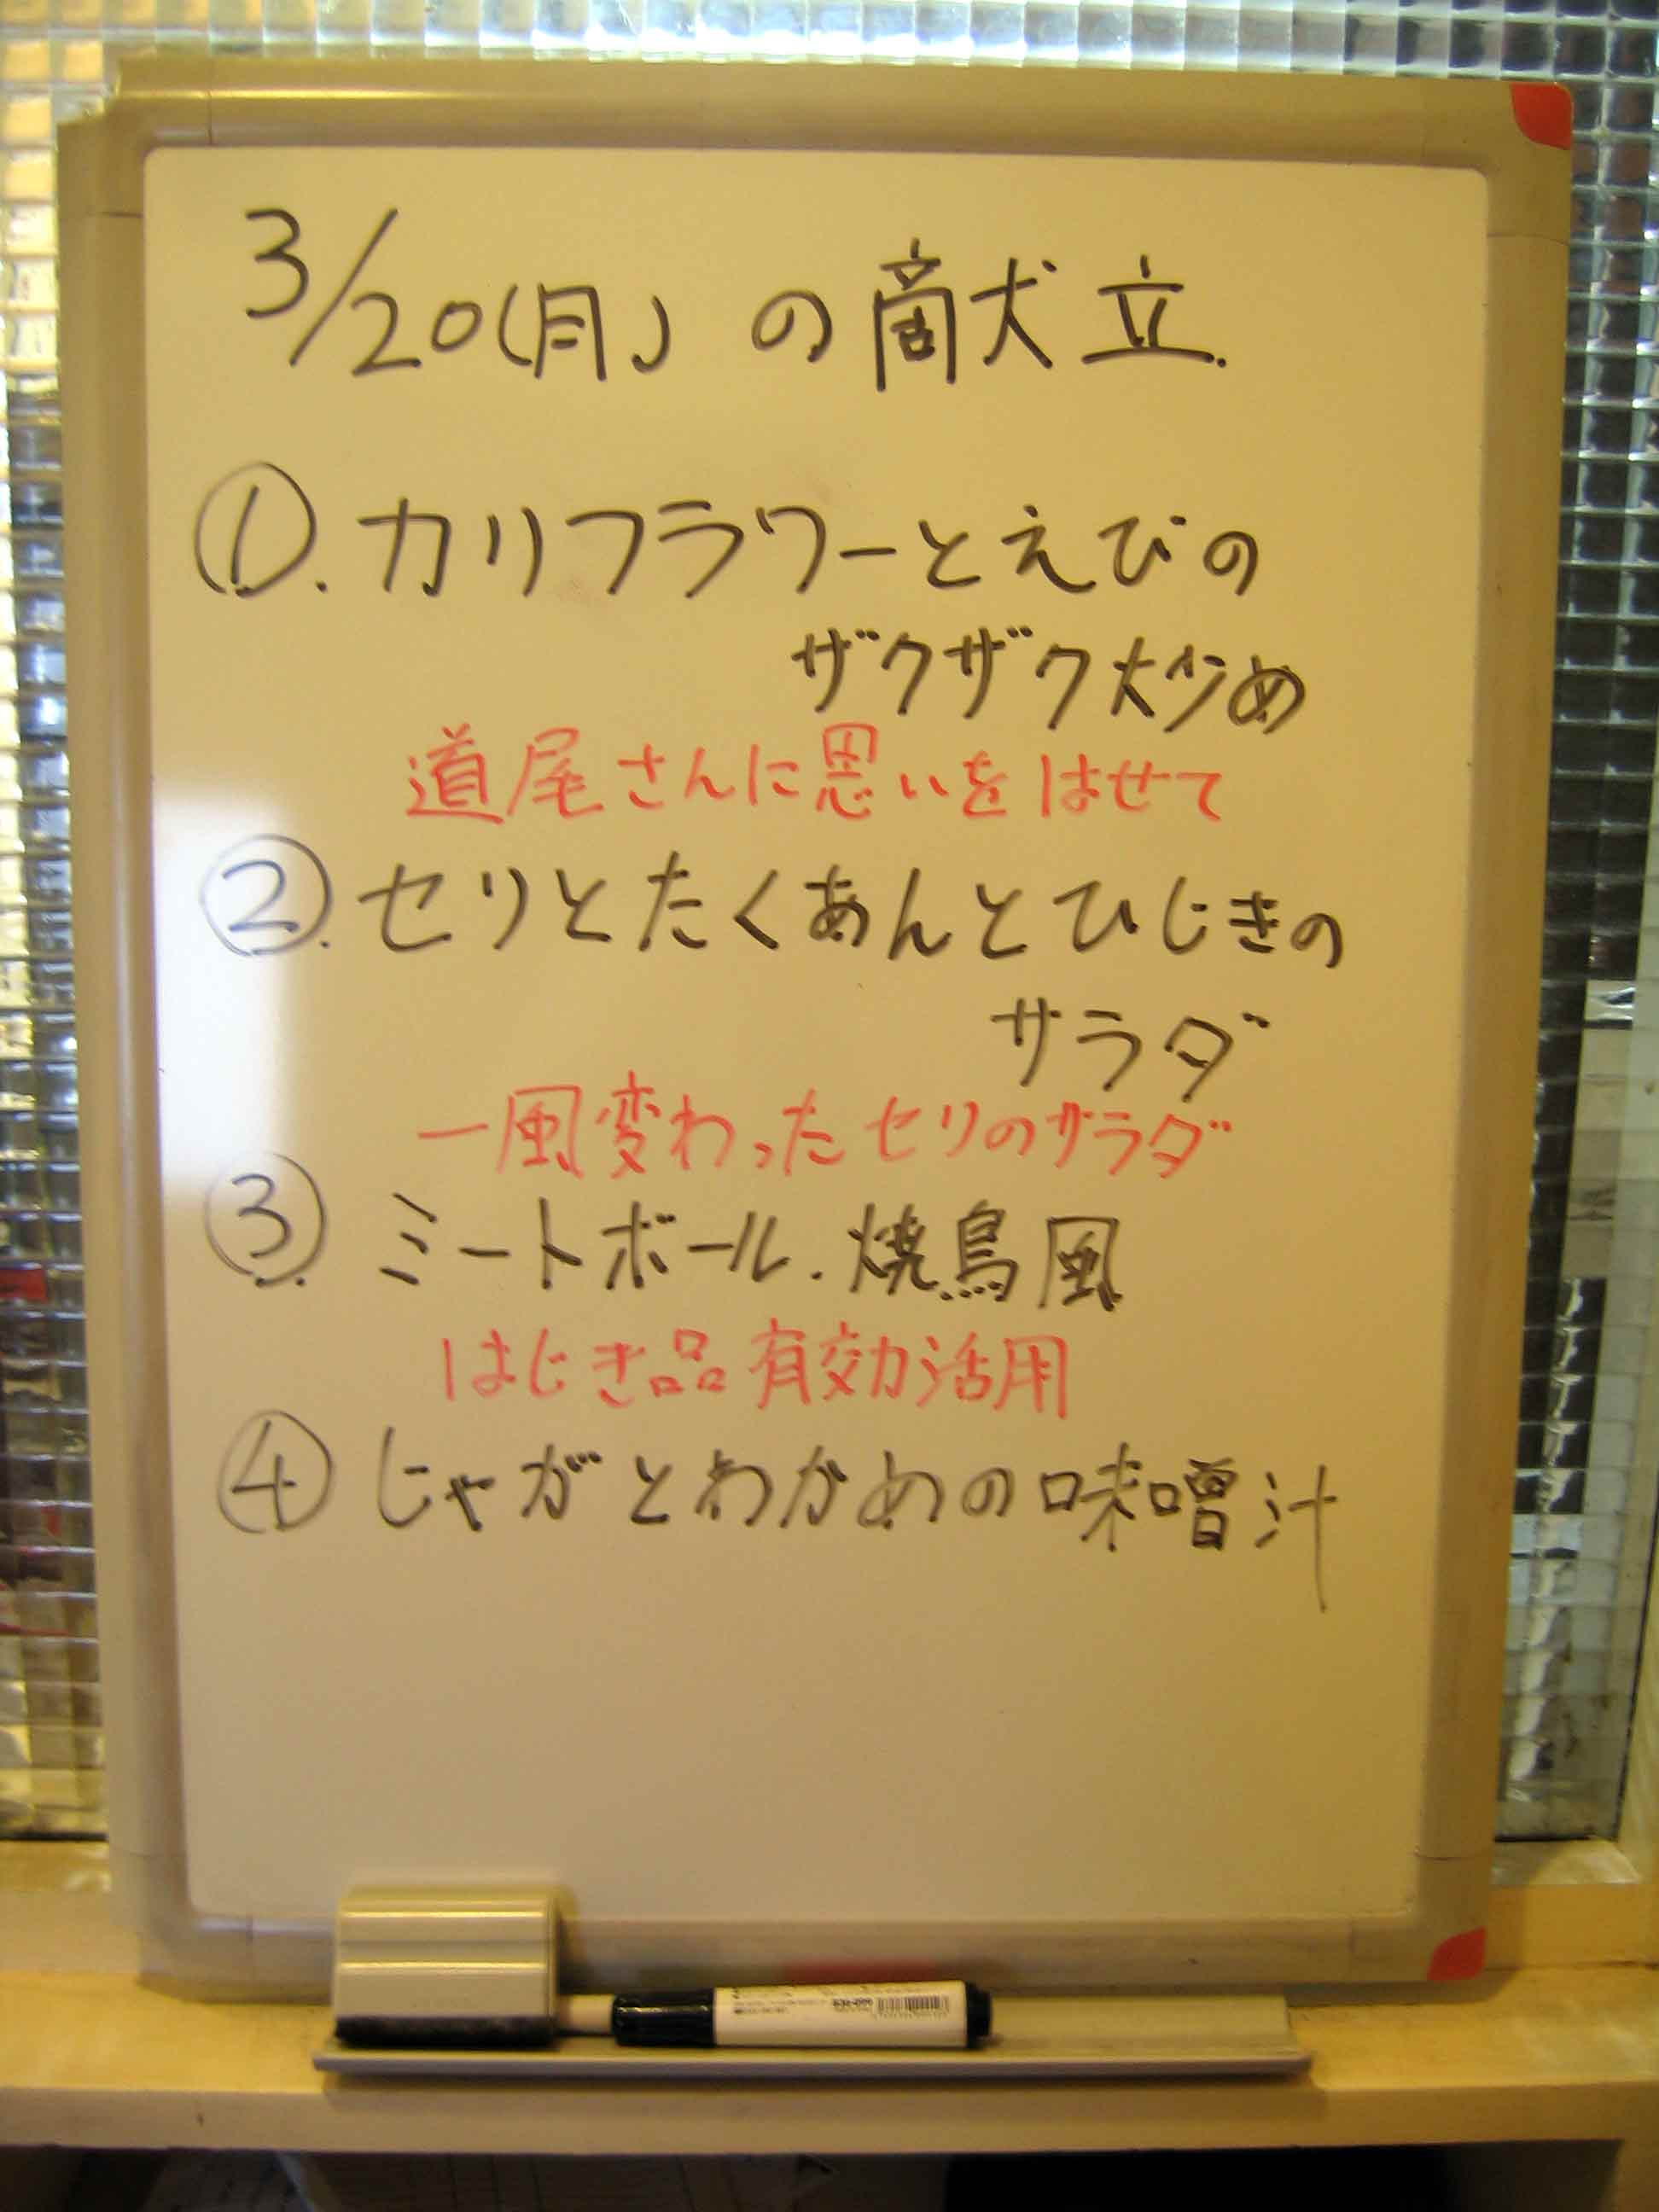 3/20(月)の献立.
①.カリフラワーとえびの
ザクザク炒め
道尾さんに思いをはせて
②.セリとたくあんとひじきの
サラダ
一風変わったセリのサラダ
③.ミートボール.焼鳥風
はじき品有効活用
④じゃがとわかめの味噌汁